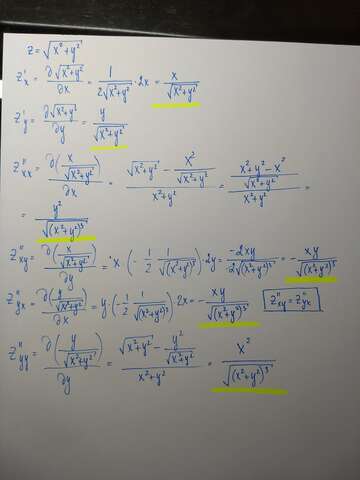 z = √(x²+y²)
z'x = ∂√(x²+y²)/∂x = 1/(2√(x²+y²)) · 2x = x/√(x²+y²)
z'y = ∂√(x²+y²)/∂y = y/√(x²+y²)
z''xx = ∂(x/√(x²+y²))/∂x = (√(x²+y²) − x²/√(x²+y²))/(x²+y²) = ((x²+y²−x²)/√(x²+y²))/(x²+y²) =
= y²/√((x²+y²)³)
z''xy = ∂(x/√(x²+y²))/∂y = x · (−1/2 · 1/√((x²+y²)³)) · 2y = −2xy/(2√((x²+y²)³)) = −xy/√((x²+y²)³)
z''yx = ∂(y/√(x²+y²))/∂x = y · (−1/2 · 1/√((x²+y²)³)) · 2x = −xy/√((x²+y²)³) z''xy = z''yx
z''yy = ∂(y/√(x²+y²))/∂y = (√(x²+y²) − y²/√(x²+y²))/(x²+y²) = x²/√((x²+y²)³)